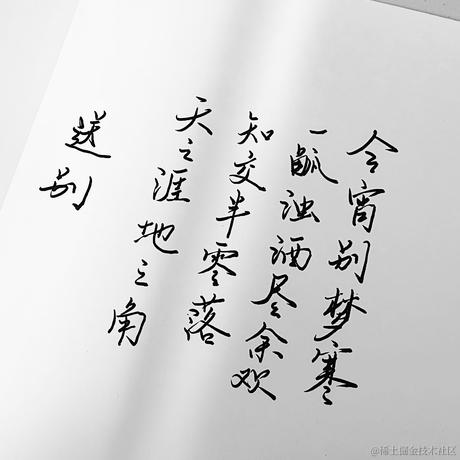 今宵别梦寒
一瓢浊酒尽余欢
知交半零落
天之涯地之角
送别
@稀土掘金技术社区